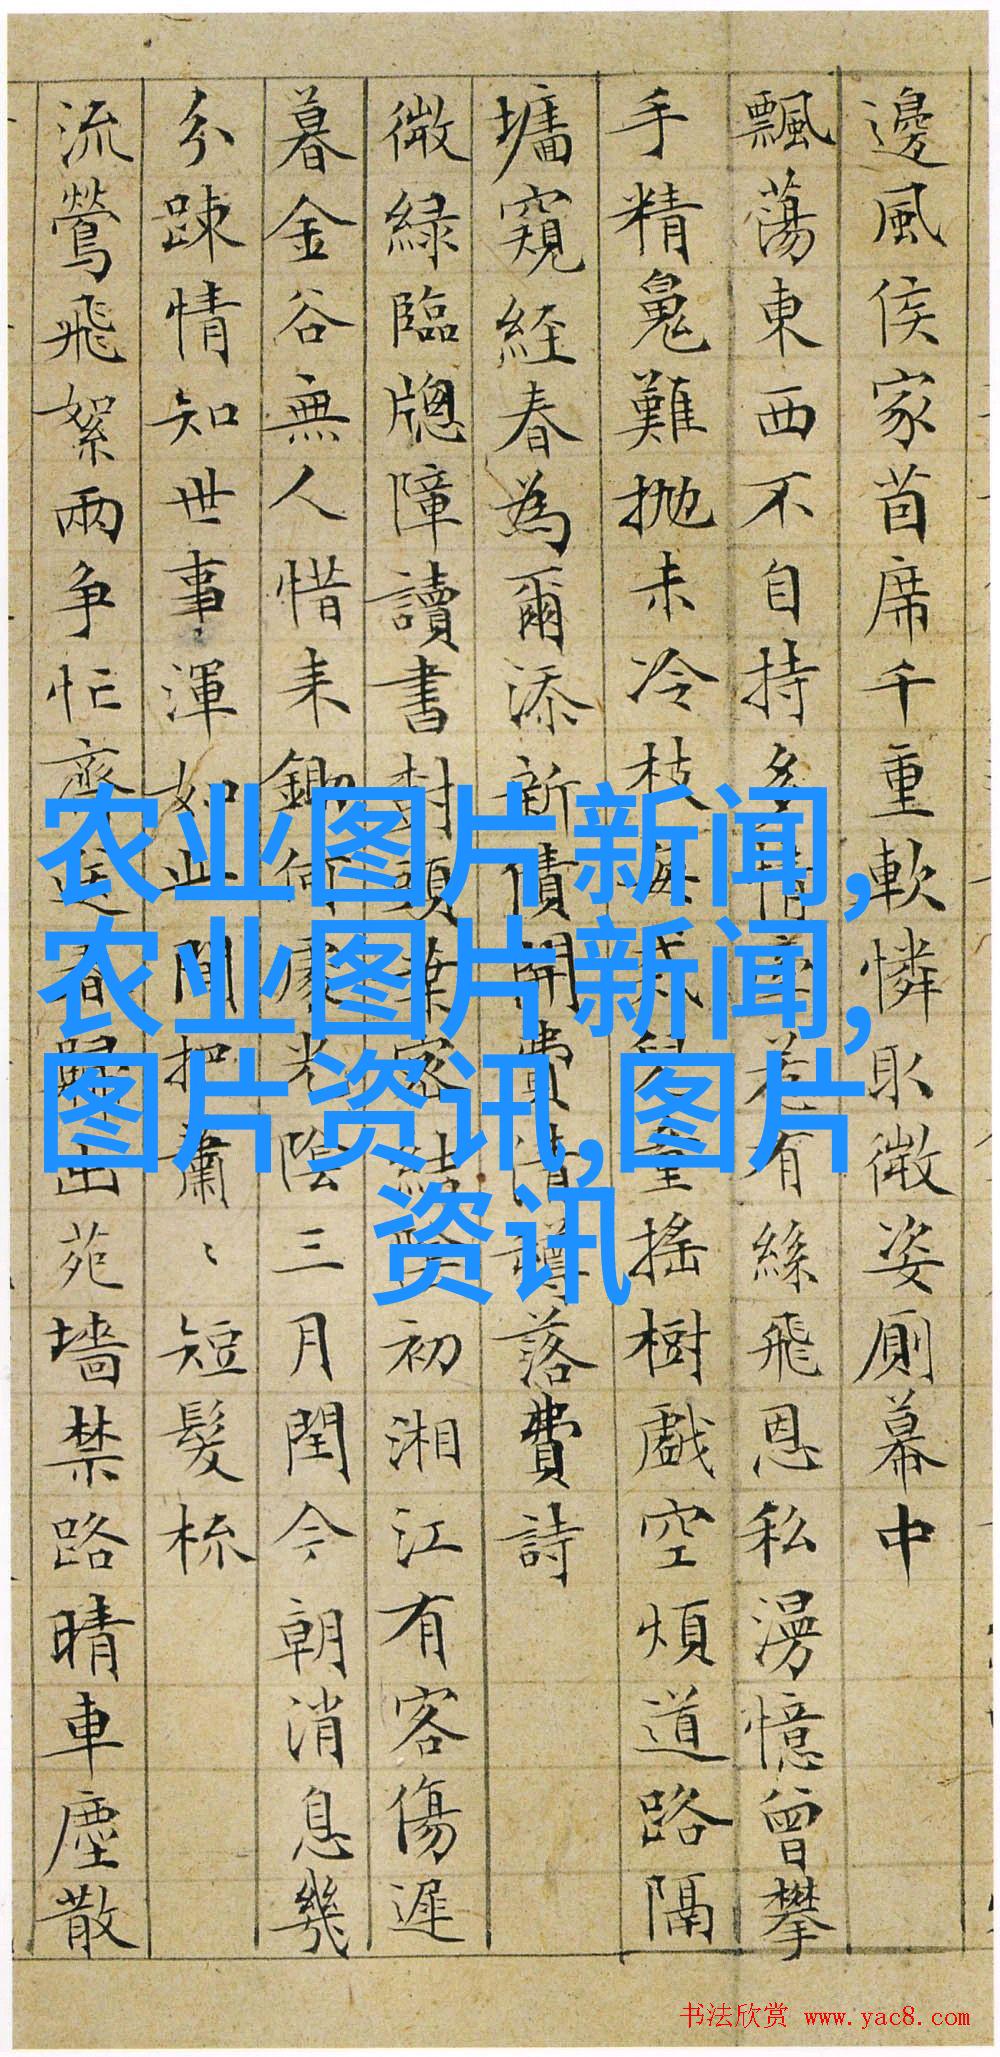 邊風侯家茵席千重軟憐取微姿厠幕中
飄蕩東西不自持多情有絲飛恩私漫憶曾攀
手精鬼難抛未冷枝搖樹戲空煩道路隔
墉窺経春為爾添新債開費落費詩
微緑臨牕障讀書封頭葉客結初湘江有客傷遲
暮金谷無人惜耒鋤何處光陰三月閏今朝消息幾
分踈情知世事渾如此間把肅〻短髮梳
流鶯飛絮兩争忙齊春歸出苑墻禁路晴車塵散
农业图片新闻,
农业图片新闻,
图片资讯,图片
资讯
书法欣赏 www.yac8.com